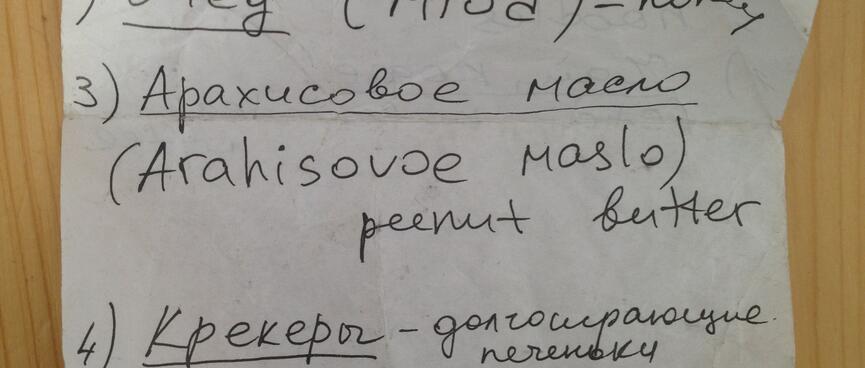 2) Мёд (Miod) - honey
3) Арахисовое масло
(Arahisovoe maslo)
peenut butter
4) Крекеры - долгоиграющие
печеньки